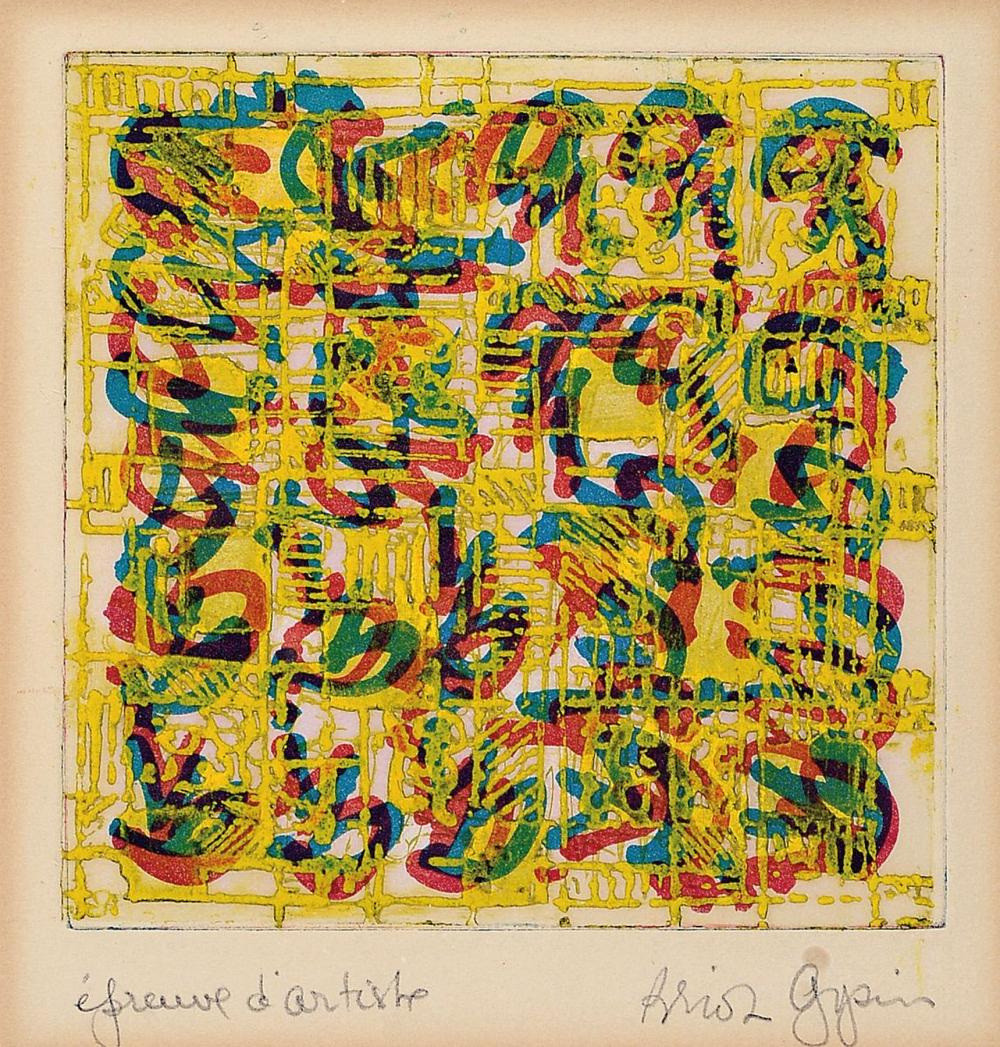 épreuve d'artiste
Brion Gysin